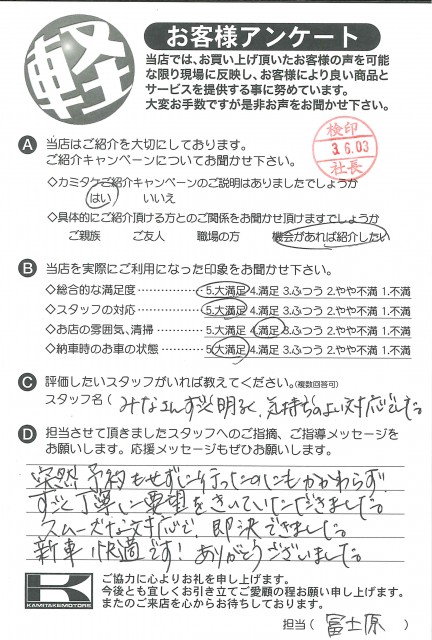 軽
お客様アンケート
当店では、お買い上げ頂いたお客様の声を可能
な限り現場に反映し、お客様により良い商品と
サービスを提供する事に努めています。
大変お手数ですが是非お声をお聞かせ下さい。
検印
3.6.03
社長
A 当店はご紹介を大切にしております。
ご紹介キャンペーンについてお聞かせ下さい。
◇カミタケご紹介キャンペーンのご説明はありましたでしょうか
はい いいえ
◇具体的にご紹介頂ける方とのご関係をお聞かせ頂けますでしょうか
ご親族 ご友人 職場の方 機会があれば紹介したい
B 当店を実際にご利用になった印象をお聞かせ下さい。
◇総合的な満足度 5.大満足 4.満足 3.ふつう 2.やや不満 1.不満
◇スタッフの対応 5.大満足 4.満足 3.ふつう 2.やや不満 1.不満
◇お店の雰囲気、清掃 5.大満足 4.満足 3.ふつう 2.やや不満 1.不満
◇納車時のお車の状態 5.大満足 4.満足 3.ふつう 2.やや不満 1.不満
C 評価したいスタッフがいれば教えてください。(複数回答可)
スタッフ名( みなさんすごく明るく、気持ちのよい対応でした。
D 担当させて頂きましたスタッフへのご指摘、ご指導メッセージを
お願いします。応援メッセージもぜひお願いします。
突然予約もせずに行ったのにもかかわらず、
すごく丁寧に要望をきいていただきました。
スムーズな対応で、即決できました。
新車快適です!ありがとうございました。
K
KAMITAKE MOTORS
ご協力に心よりお礼を申し上げます。
今後とも宜しくお引き立てご愛顧の程お願い申し上げます。
またのご来店を心からお待ちしております。
担当( 冨士原 )